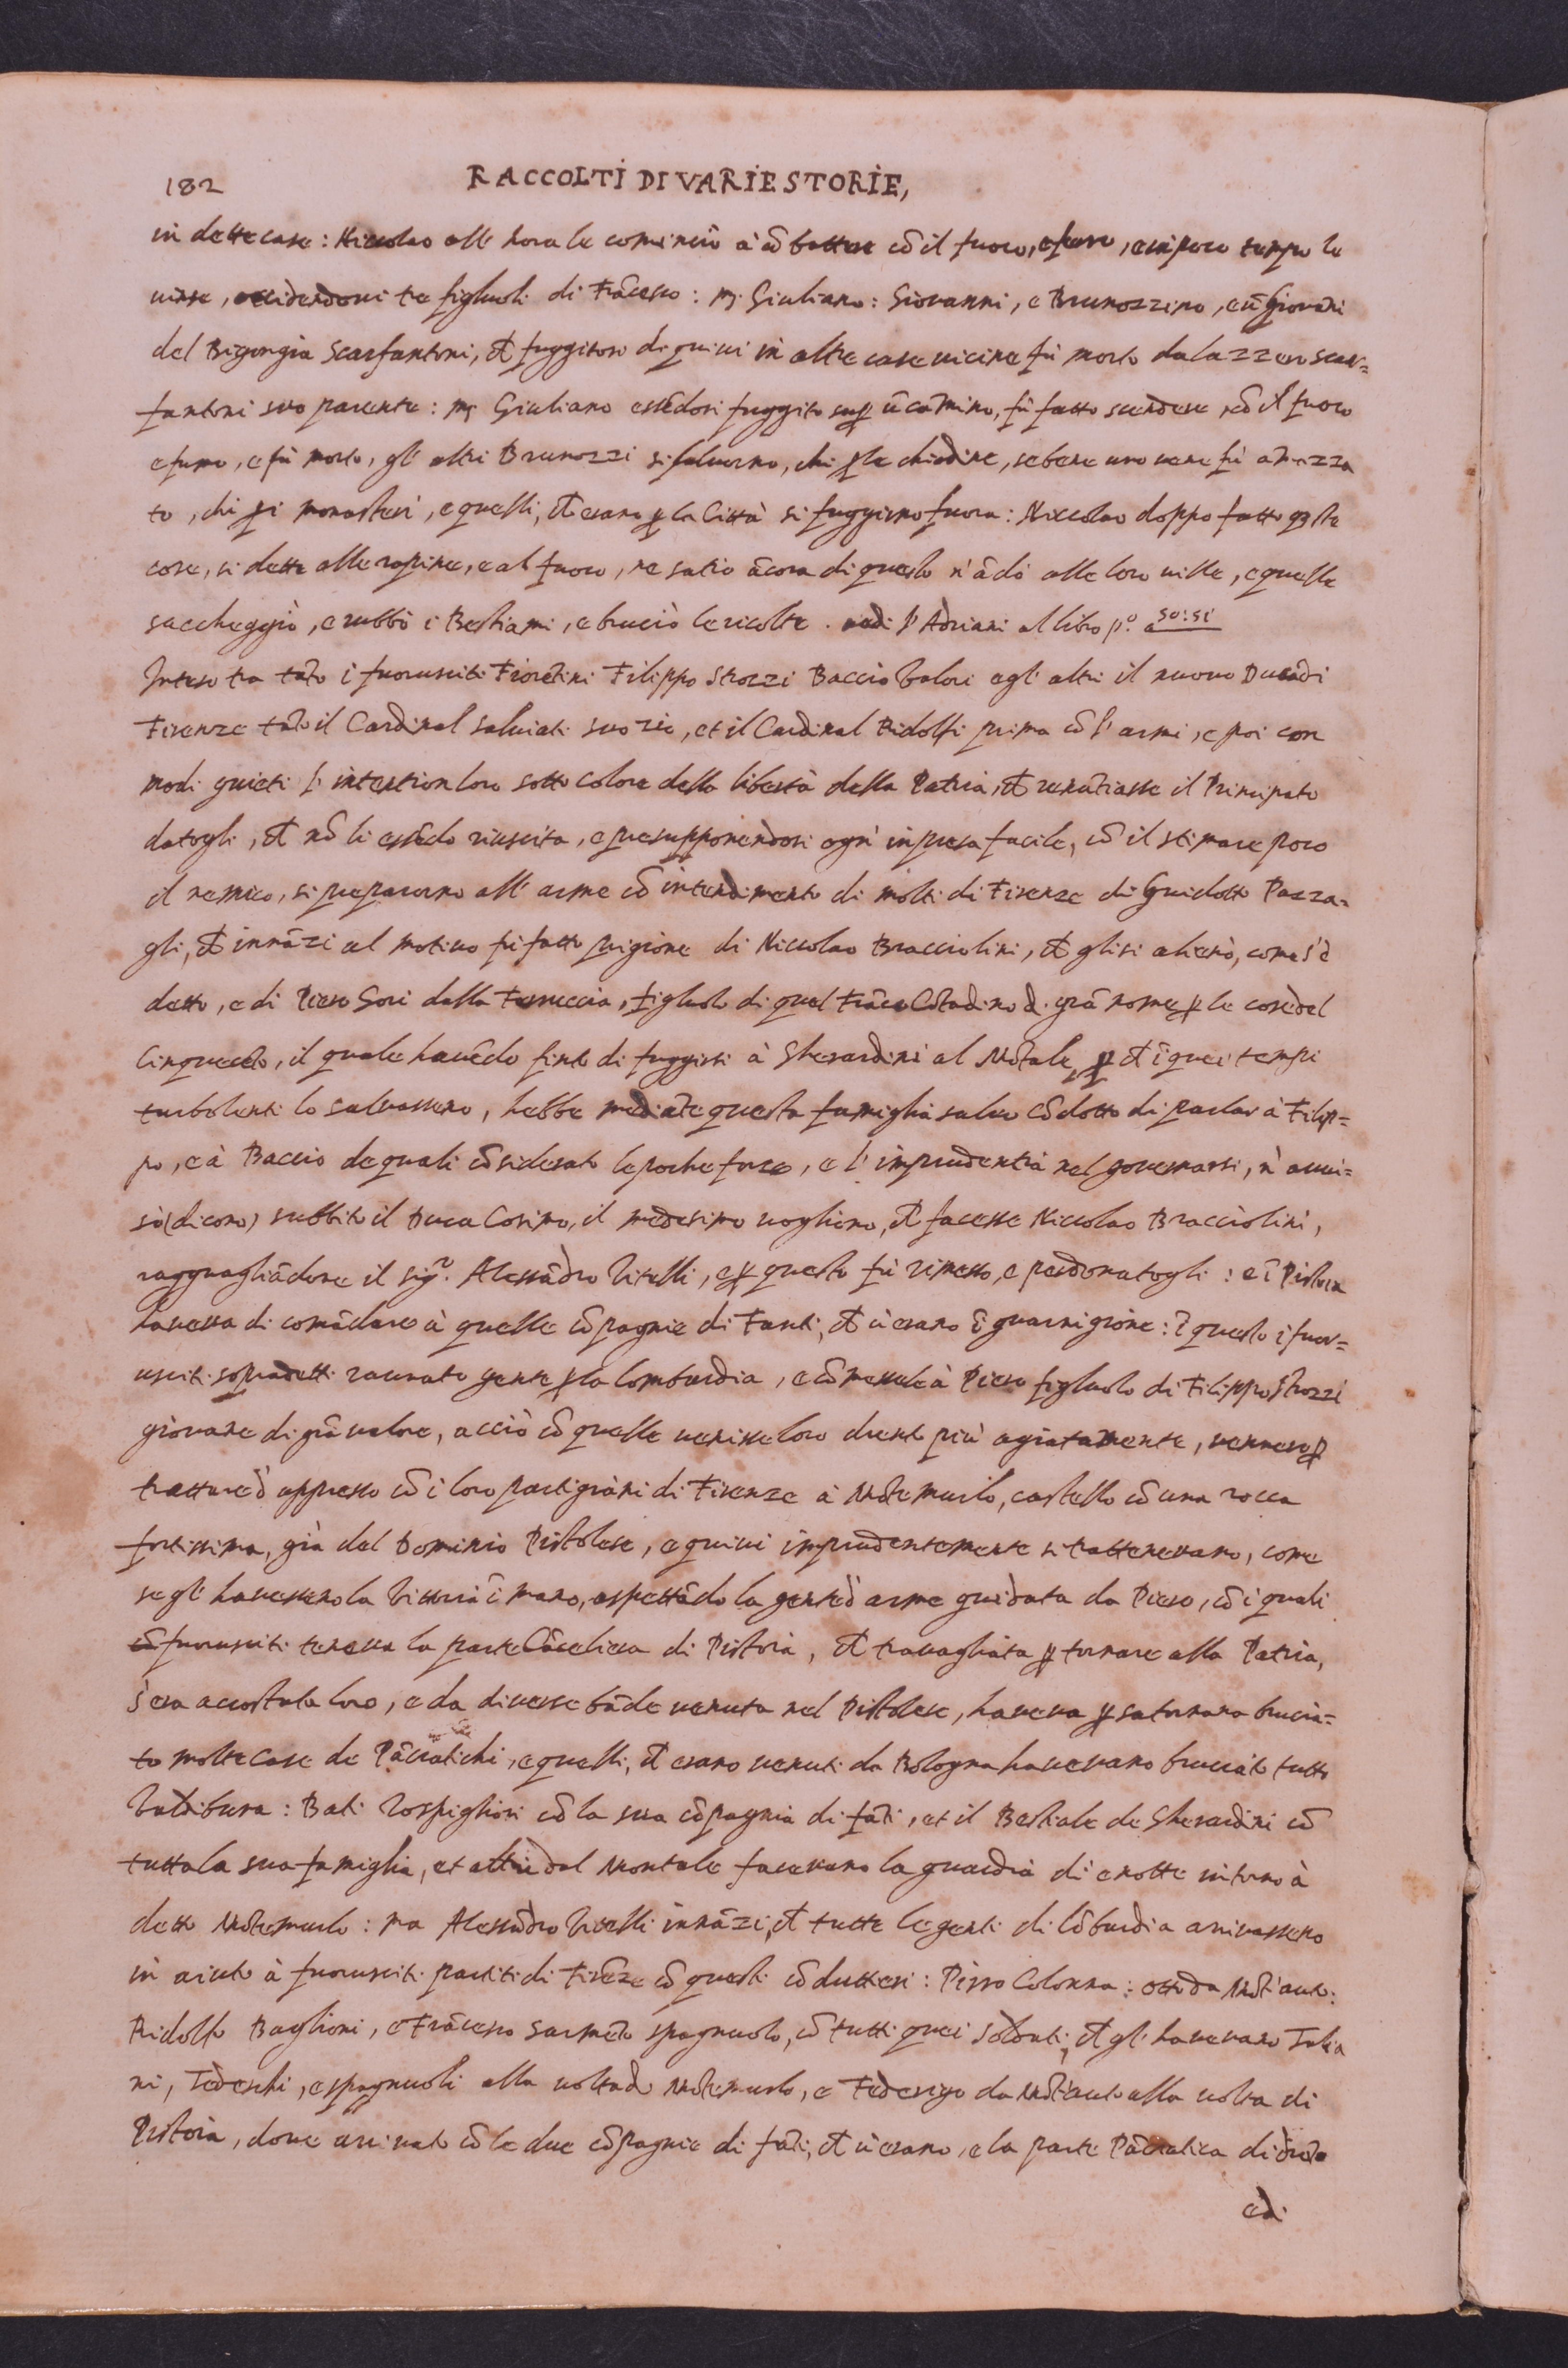 182
RACCOLTI DI VARIE STORIE,
in dette case: Niccolao all'hora le cominciò à cō battere cō il fuoco, e fumo, e in poco tempo le
vinse, occidendovi tre figluoli di Frācesco: mʃ. Giuliano: Giovanni, e Brunozzino, e ū Giovāni
del Bigongia Scarfantoni, ch̄ fuggitosi di quivi in altre case vicine fù morto da Lazzero Scar=
fantoni suo parente: mʃ Giuliano essēdosi fuggito su ꝑ ū cāmino, fù fatto scendere, cō il fuoco
e fumo, e fù morto, gl'altri Brunozzi si salvorno, chi ꝑ le chiedine, sebene uno vene fù amazza
to, chi ꝑ i monasteri, e quelli, ch̄ erano ꝑ la Città si fuggirno fuora: Niccolao doppo fatto q̄ste
cose, si dette alle rapine, e al fuoco, ne satio ācora di questo n'ādò alle loro ville, e quelle
saccheggiò, e rubbò i Bestiami, e bruciò le ricolte. vedi l'Adriani al libro pº. a 50: 51
Inteso tra tāto i fuorusciti Fiorētini Filippo Strozzi Baccio Valori e gl'altri il nuovo Duca di
Firenze tāto il Cardinal Salviati suo zio, et il Cardinal Ridolfi prima cō l'armi, e poi con
modi quieti l'intention loro sotto colore della libertà della Patria, ch̄ renūtiasse il Principato
datogli, ch̄ nō li essēdo riuscita, e presupponendosi ogn'inpresa facile, cō il stimare poco
il nemico, si preparorno all'arme cō intendimento di molti di Firenze di Guidotto Pazza=
gli, ch̄ innāzi al motivo fù fatto prigione di Niccolao Bracciolini, ch̄ gli si alienò, come s'è
detto, e di Piero Gori della Ferruccia, figluolo di quel Frāco Cōtadino di grā nome ꝑ le cose del
Cinquecēto, il quale havēdo finto di fuggirsi à Gherardini al Mōtale, ꝑ ch̄ ī quei tempi
turbolenti lo salvassero, hebbe mediāte questa famiglia salvo cōdotto di parlar à Filip=
po, e à Baccio de quali cōsiderato le poche forze, e l'imprudentia nel governarsi, n'avvi=
sò (dicono) subbito il Duca Cosimo, il medesimo vogliono, ch̄ facesse Niccolao Bracciolini,
ragguagliādone il sigʳ. Alessādro Vitelli, e ꝑ questo fù rimesso, e perdonatogli: e ī Pistoia
haveva di comādare à quelle cōpagnie di Fanti, ch̄ v'erano ī guarnigione: ī questo i fuor=
usciti sopradetti raunato gente ꝑ la Lombardia, e cōmessole à Piero figluolo di Filippo Strozzi
giovane di grā valore, acciò cō quelle venisse loro drento più agiatamente, vennero ꝑ
trattare d'appresso cō i loro partigiani di Firenze à Mōtemurlo, castello cō una rocca
fortissima, già del Dominio Pistolese, e quivi imprudentemente si trattenevano, come
se gl'havessero la Vittoria ī mano, aspettādo la gente d'arme guidata da Piero, cō i quali
fuorusciti teneva la parte Cācelliera di Pistoia, ch̄ travagliata ꝑ tornare alla Patria,
s'era accostata loro, e da diverse bāde venuta nel Pistolese, haveva ꝑ Saturnana brucia=
to molte Case de Pāciatichi, e quelli, ch̄ erano venuti da Bologna havevano bruciato tutto
Valdibura: Bati Rospigliosi cō la sua cōpagnia di fāti, et il Bestiale de Gherardini cō
tutta la sua famiglia, et altri dal Montale facevano la guardia dì e notte intorno à
detto Mōtemurlo: ma Alessādro Vitelli innāzi, ch̄ tutte le genti di Lōbardia arrivassero
in aiuto à fuorusciti partiti di Firēze cō questi cōduttieri: Pirro Colonna: Otto da Mōt'auto:
Ridolfo Baglioni, e Frācesco Sarmēto spagnuolo, cō tutti quei soldati, ch̄ gl'havevano Italia
ni, Tedeschi, e spagnuoli alla volta di Mōtemurlo, e Federigo da Mōt'auto alla volta di
Pistoia, dove arrivato cō le due cōpagnie di fāti, ch̄ v'erano, e la parte Pāciatica di drēto
ed